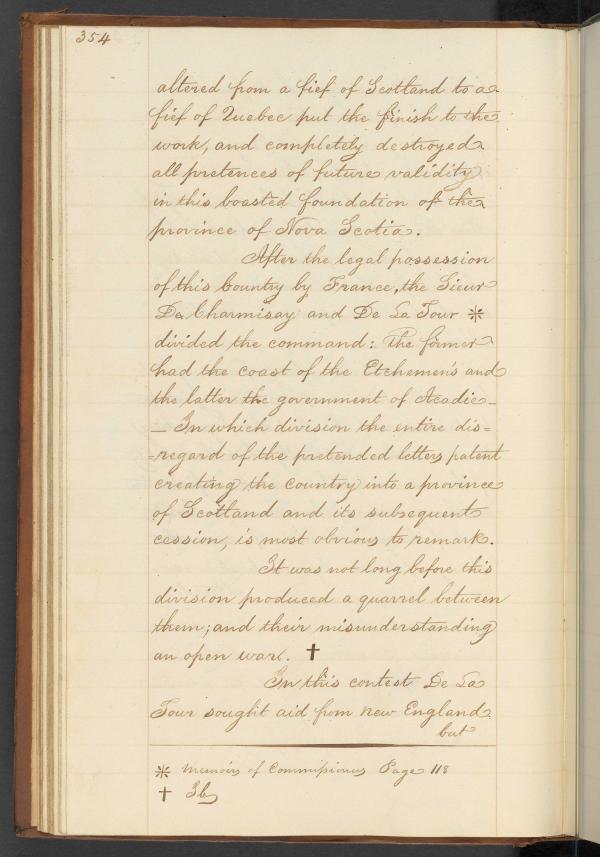 354
altered from a fief of Scotland to a
fief of Quebec put the finish to the
work, and completely destroyed
all pretences of future validity
in this boasted foundation of the
province of Nova Scotia.
After the legal possession
of this Country by France, the Sieur
De Charmisay and De La Tour ⁜
divided the command: The former
had the coast of the Etchemen's and
the latter the government of Acadie_
_ In which division the entire dis=
=regard of the pretended letters patent
creating the country into a province
of Scotland and its subsequent
cession, is most obvious to remark.
It was not long before this
division produced a quarrel between
them; and their misunderstanding
an open ware. †
In this contest De La
Tour sought aid from New England
but
⁜ Memoirs of Commissioners Page 118
† Ib